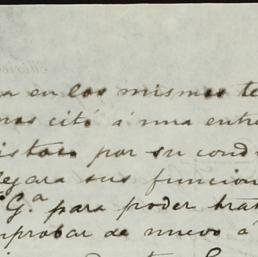 a en los mismos te
nos citó á una entre
por su condu
legara sus funcion
G.ª para poder trat
mprobar de nuevo á